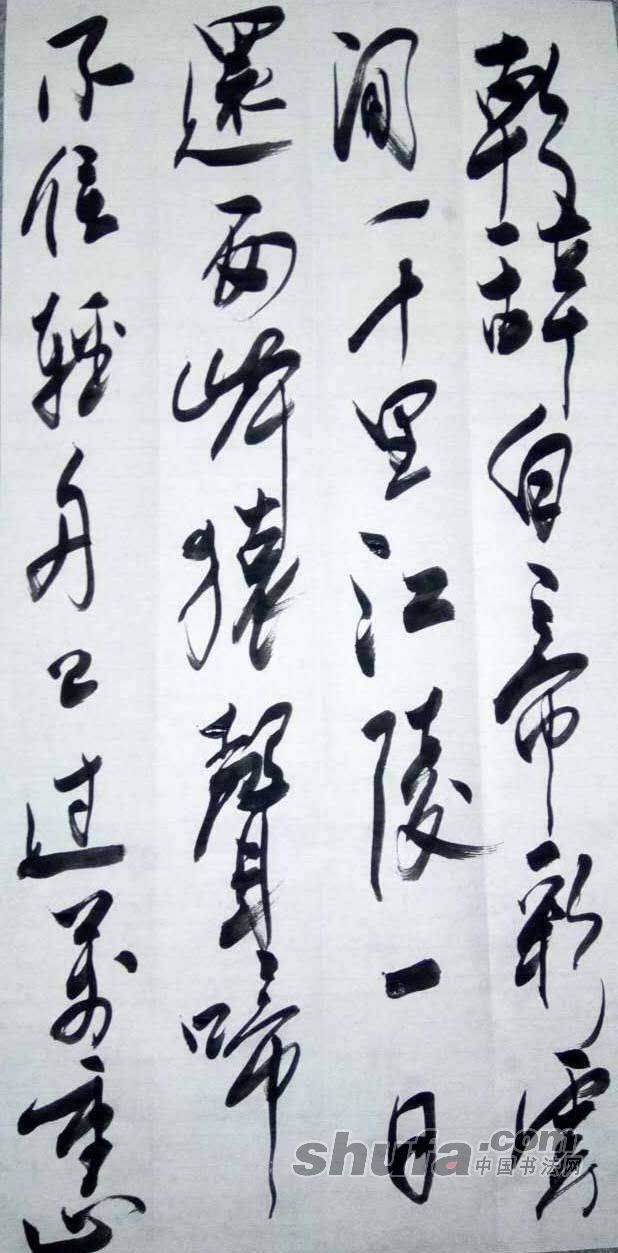 朝辞白帝彩雲
间千里江陵一日
還两岸猿聲啼
不住輕舟已过萬重山
shufa.com
中国书法网